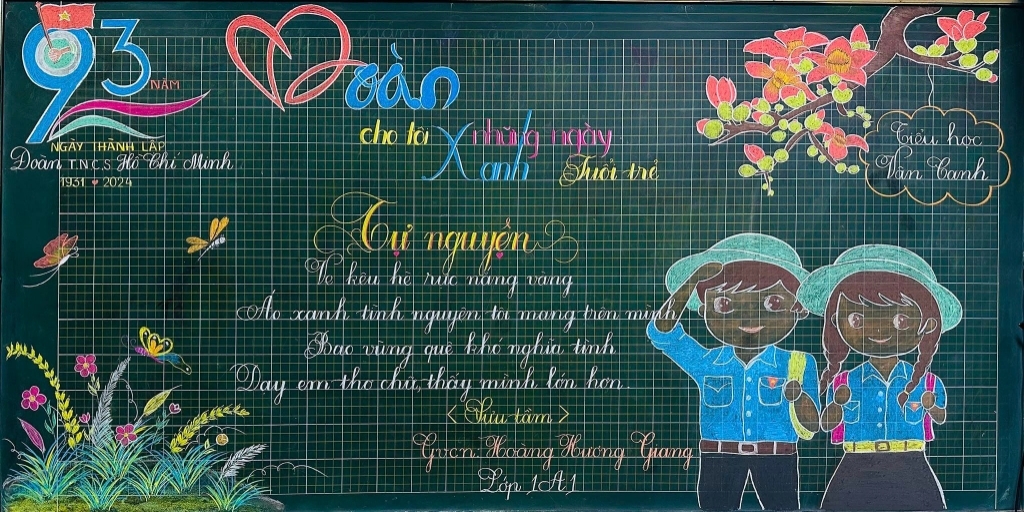 93 NĂM
NGÀY THÀNH LẬP
Đoàn T.N.C.S Hồ Chí Minh
1931 ♥ 2024
Đoàn
cho tôi những ngày
Xanh Tuổi trẻ
Tiểu học
Vân Canh
Tự nguyện
Ve kêu hè rực nắng vàng
Áo xanh tình nguyện tôi mang trên mình
Bao vùng quê khó nghĩa tình
Dạy em thơ chữ, thấy mình lớn hơn.
< Sưu tầm >
Gvcn: Hoàng Hương Giang
Lớp 1A1